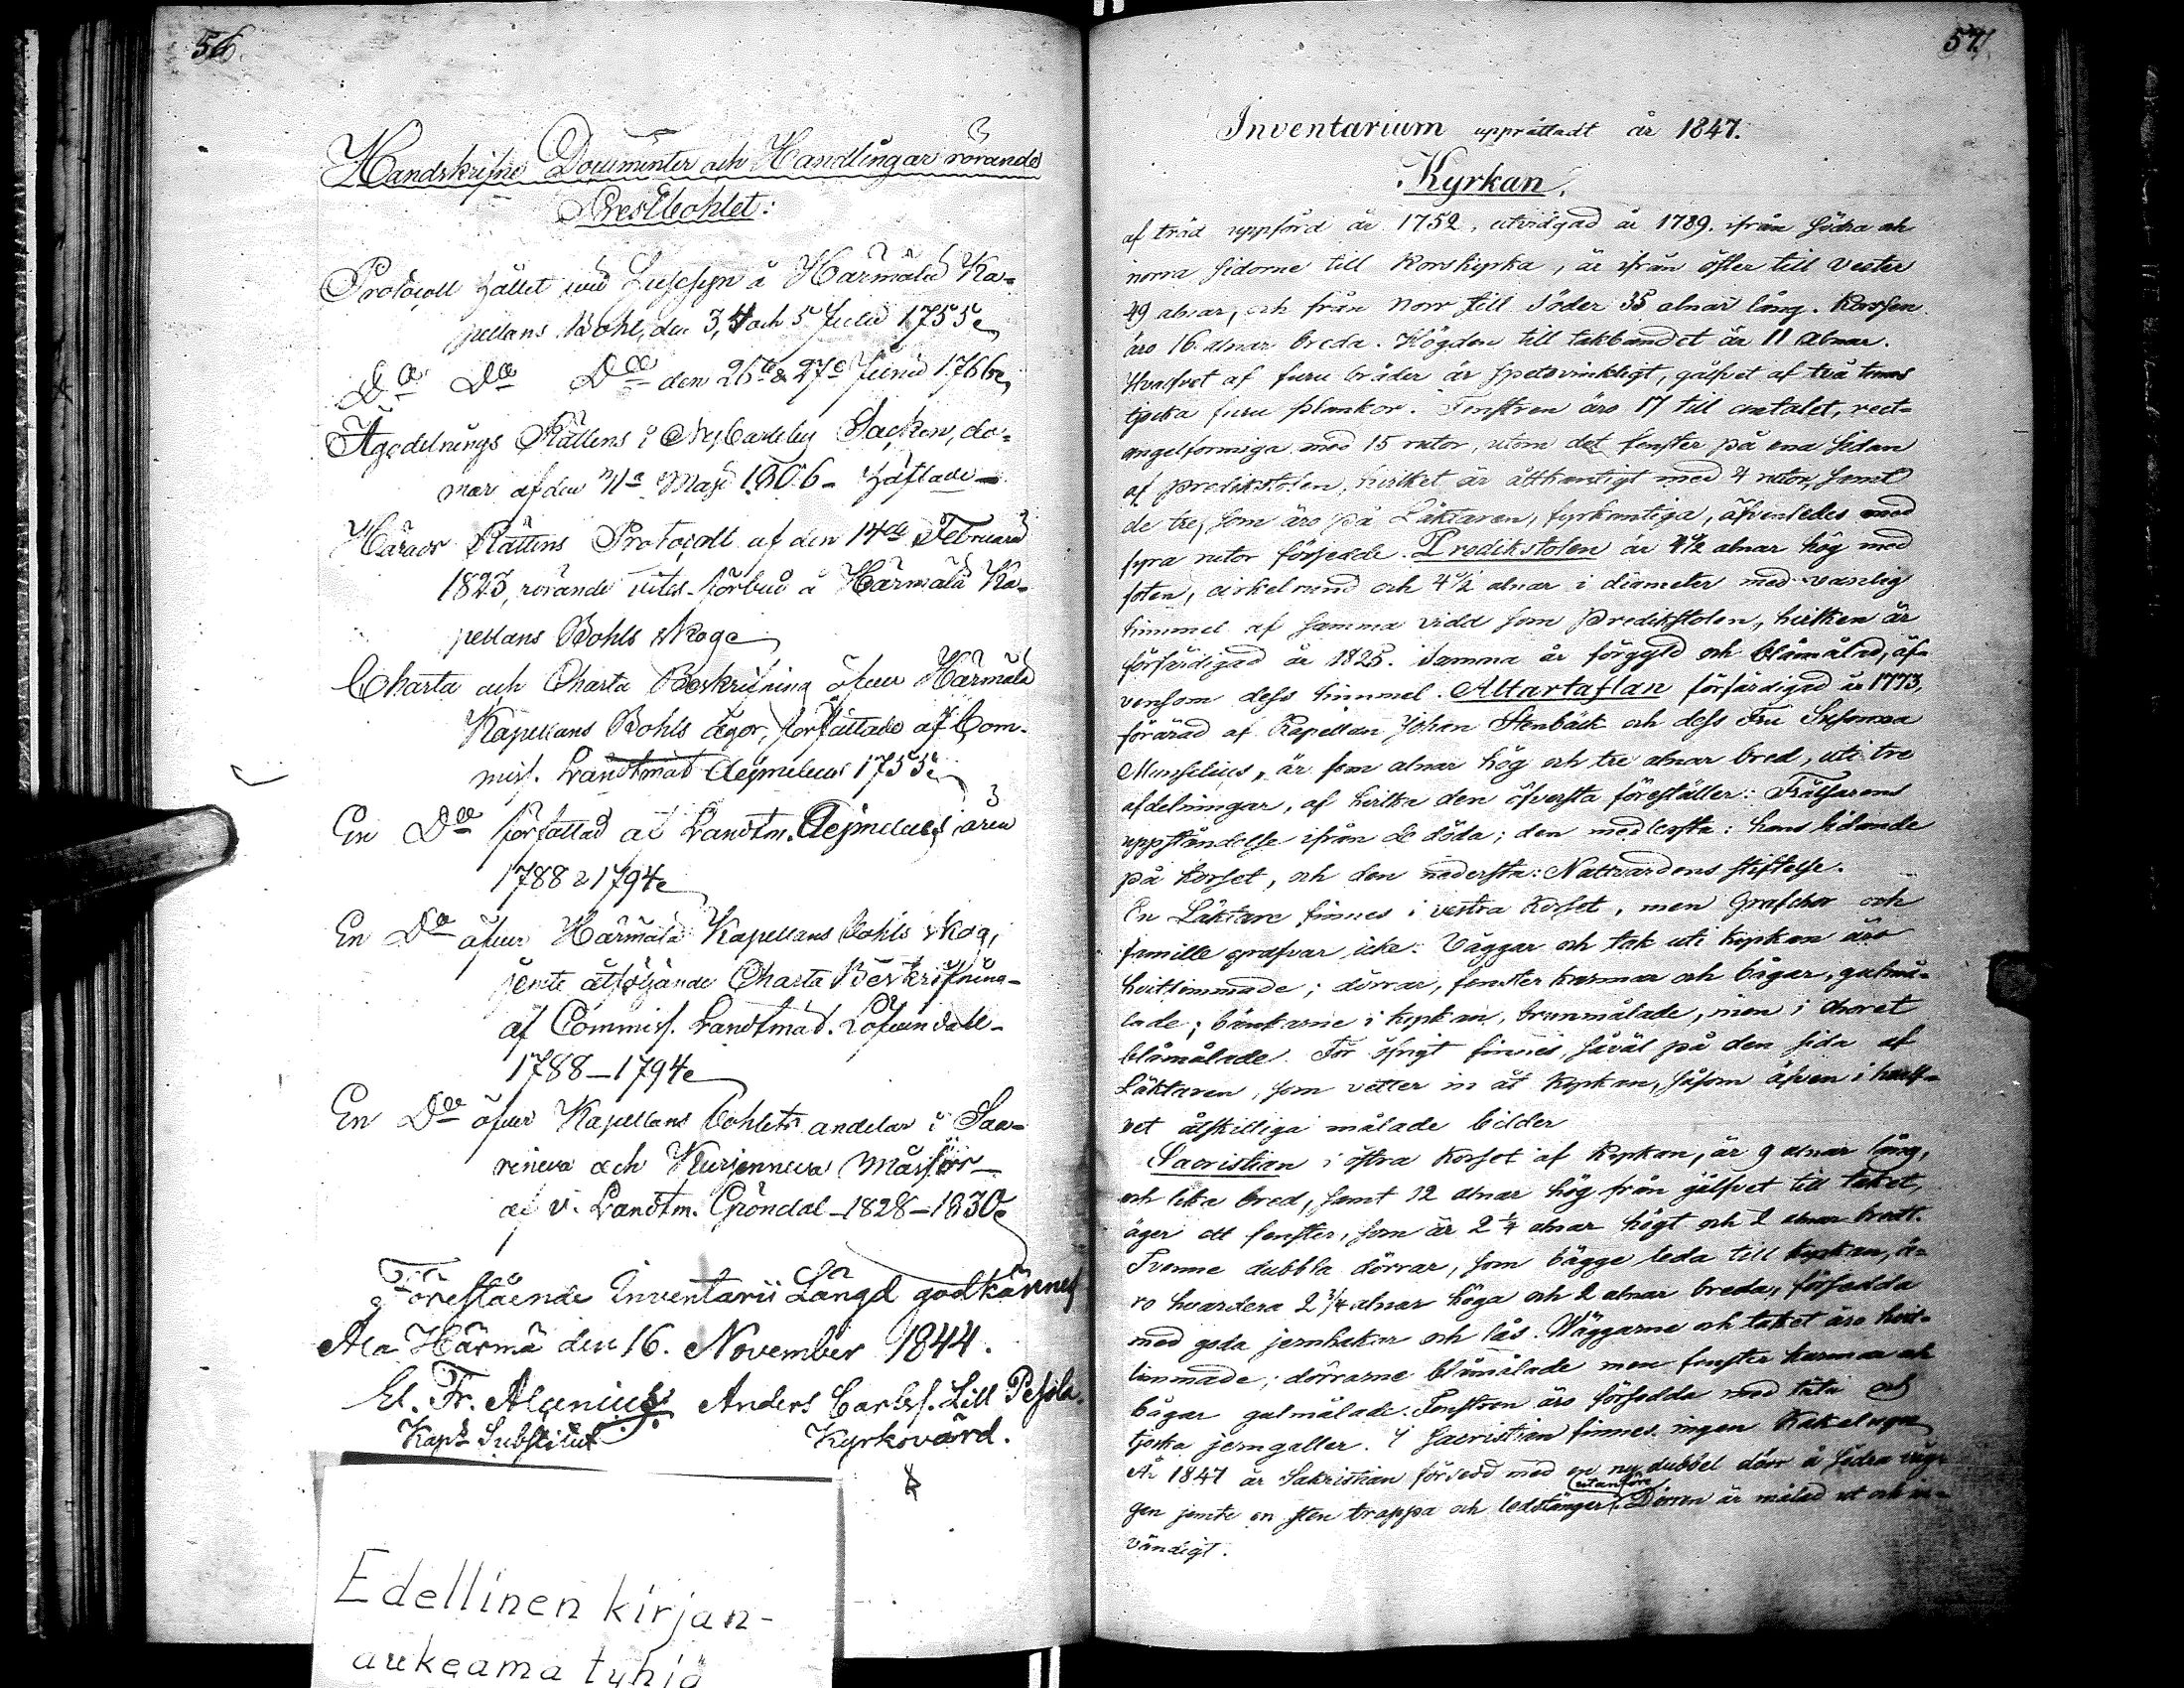 56.
Handskrifne Documenter och Handlingar rörande
Prestbohlet:
Protocoll hållet vid Husesyn å Härmälä Ka-
pellans Bohl, den 3, 4 och 5 Julii 1755
Do Do Do den 26te & 27de Junii 1766
Ägodelnings Rättens i Ny Carleby Sacken, do-
mar af den 11te Maji 1806 häftade
Härads Rättens Protocoll af den 14de Februarii
1823, rörande vites-förbud å Härmälä Ka-
pellans Bohls skog
Charta och Charta Beskrifning öfver Härmälä
Kapellans Bohls ägor, författade af Com-
miss. Landtmät. Aejmelæus 1755
En Do författad af Landtm. Aejmelæus, åren
1788 & 1794
En Do öfver Härmälä Kapellans Bohls skog,
jemte åtföljande Charta Beskrifning
af Commiss. Landtmät. Löfvendahl
1788–1794
En Do öfver Kapellans Bohlets andelar i Saa-
rineva och Kurjenneva Måssor
af v. Landtm. Gröndal 1828–1830
Förestående Inventarii Längd godkännes
Ala Härmä den 16. November 1844.
El. Fr. Alcenius Anders Carlss. Lill Pesola.
Kaps Substitut Kyrkovärd.
Edellinen kirjan-
aukeama tyhjä
57.
Inventarium upprättadt år 1847.
Kyrkan,
af träd uppförd år 1752, utvidgad år 1789. ifrån södra och
norra sidorne till Korskyrka, är ifrån öster till vester
49 alnar, och från Norr till Söder 35 alnar lång. Korssen
äro 16 alnar breda. Högden till takbandet är 11 alnar.
Hvalfvet af furu bräder är spetsvinkligt, gålfvet af två tums
tjocka furu plankor. Fenstren äro 17 till antalet, rect-
angelformiga med 15 rutor, utom det fenster på ena sidan
af predikstolen, hvilket är åttkantigt med 4 rutor, samt
de tre, som äro på Läktaren, fyrkantiga, äfvenledes med
fyra rutor försedde. Predikstolen är 4 1/2 alnar hög med
foten, cirkelrund och 4 1/2 alnar i diameter med vanlig
himmel af samma vidd som predikstolen, hvilken är
förfärdigad år 1825. Samma är förgyld och blåmålad, äf-
vensom dess himmel. Altartaflan förfärdigad år 1773,
förärad af Kapellan Johan Stenbäck och dess Fru Susanna
Munselius, är fem alnar hög och tre alnar bred, uti tre
afdelningar, af hvilka den öfversta föreställer: Frälsarens
uppståndelse ifrån de döda; den medlersta: hans lidande
på korset, och den nedersta: Nattvardens stiftelse.
En Läktare finnes i vestra korset, men Grafchor och
famille grafvar icke. Väggar och tak uti kyrkan äro
hvitlimmade; dörrar, fenster karmar och bågar, gulmå-
lade; bänkarne i kyrkan, brunmålade, men i choret
blåmålade. För öfrigt finnes, såväl på den sida af
Läktaren, som vetter in åt kyrkan, såsom äfven i hvalf-
vet åtskilliga målade bilder
Sacristian i östra korset af kyrkan, är 9 alnar lång,
och lika bred, samt 12 alnar hög från gålfvet till taket,
äger ett fenster, som är 2 1/4 alnar högt och 2 alnar bredt.
Tvenne dubbla dörrar, som bägge leda till kyrkan, ä-
ro hvardera 2 3/4 alnar höga och 2 alnar breda, försedda
med goda jernhakar och lås. Wäggarne och taket äro hvit-
limmade; dörrarne blåmålade men fenster karmar och
bågar gulmålade. Fenstren äro försedda med täta och
tjocka jerngaller. I sacristian finnes ingen Kakelugn
År 1847 är Sakristian försedd med en ny dubbel dörr å södra väg-
gen jemte en sten trappa och ledstänger utanföre. Dörren är målad ut och in-
vändigt.